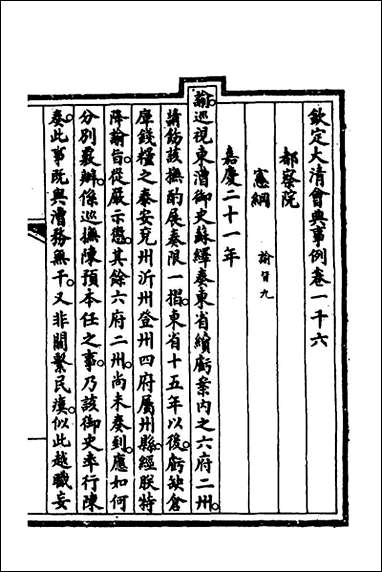 欽定大清會典事例卷一千六
都察院
憲綱 諭旨九
嘉慶二十一年
諭。巡視東漕御史蘇繹奏東省續虧案內之六府二州。
請飭該撫酌展奏限一摺。東省十五年以後。虧缺倉
庫錢糧之泰安兗州沂州登州四府屬州縣。經朕特
降諭旨。從嚴示懲。其餘六府二州。尚未奏到。應如何
分別覈辦。係巡撫陳預本任之事。乃該御史率行陳
奏。此事旣與漕務無干。又非關繫民瘼。似此越職妄